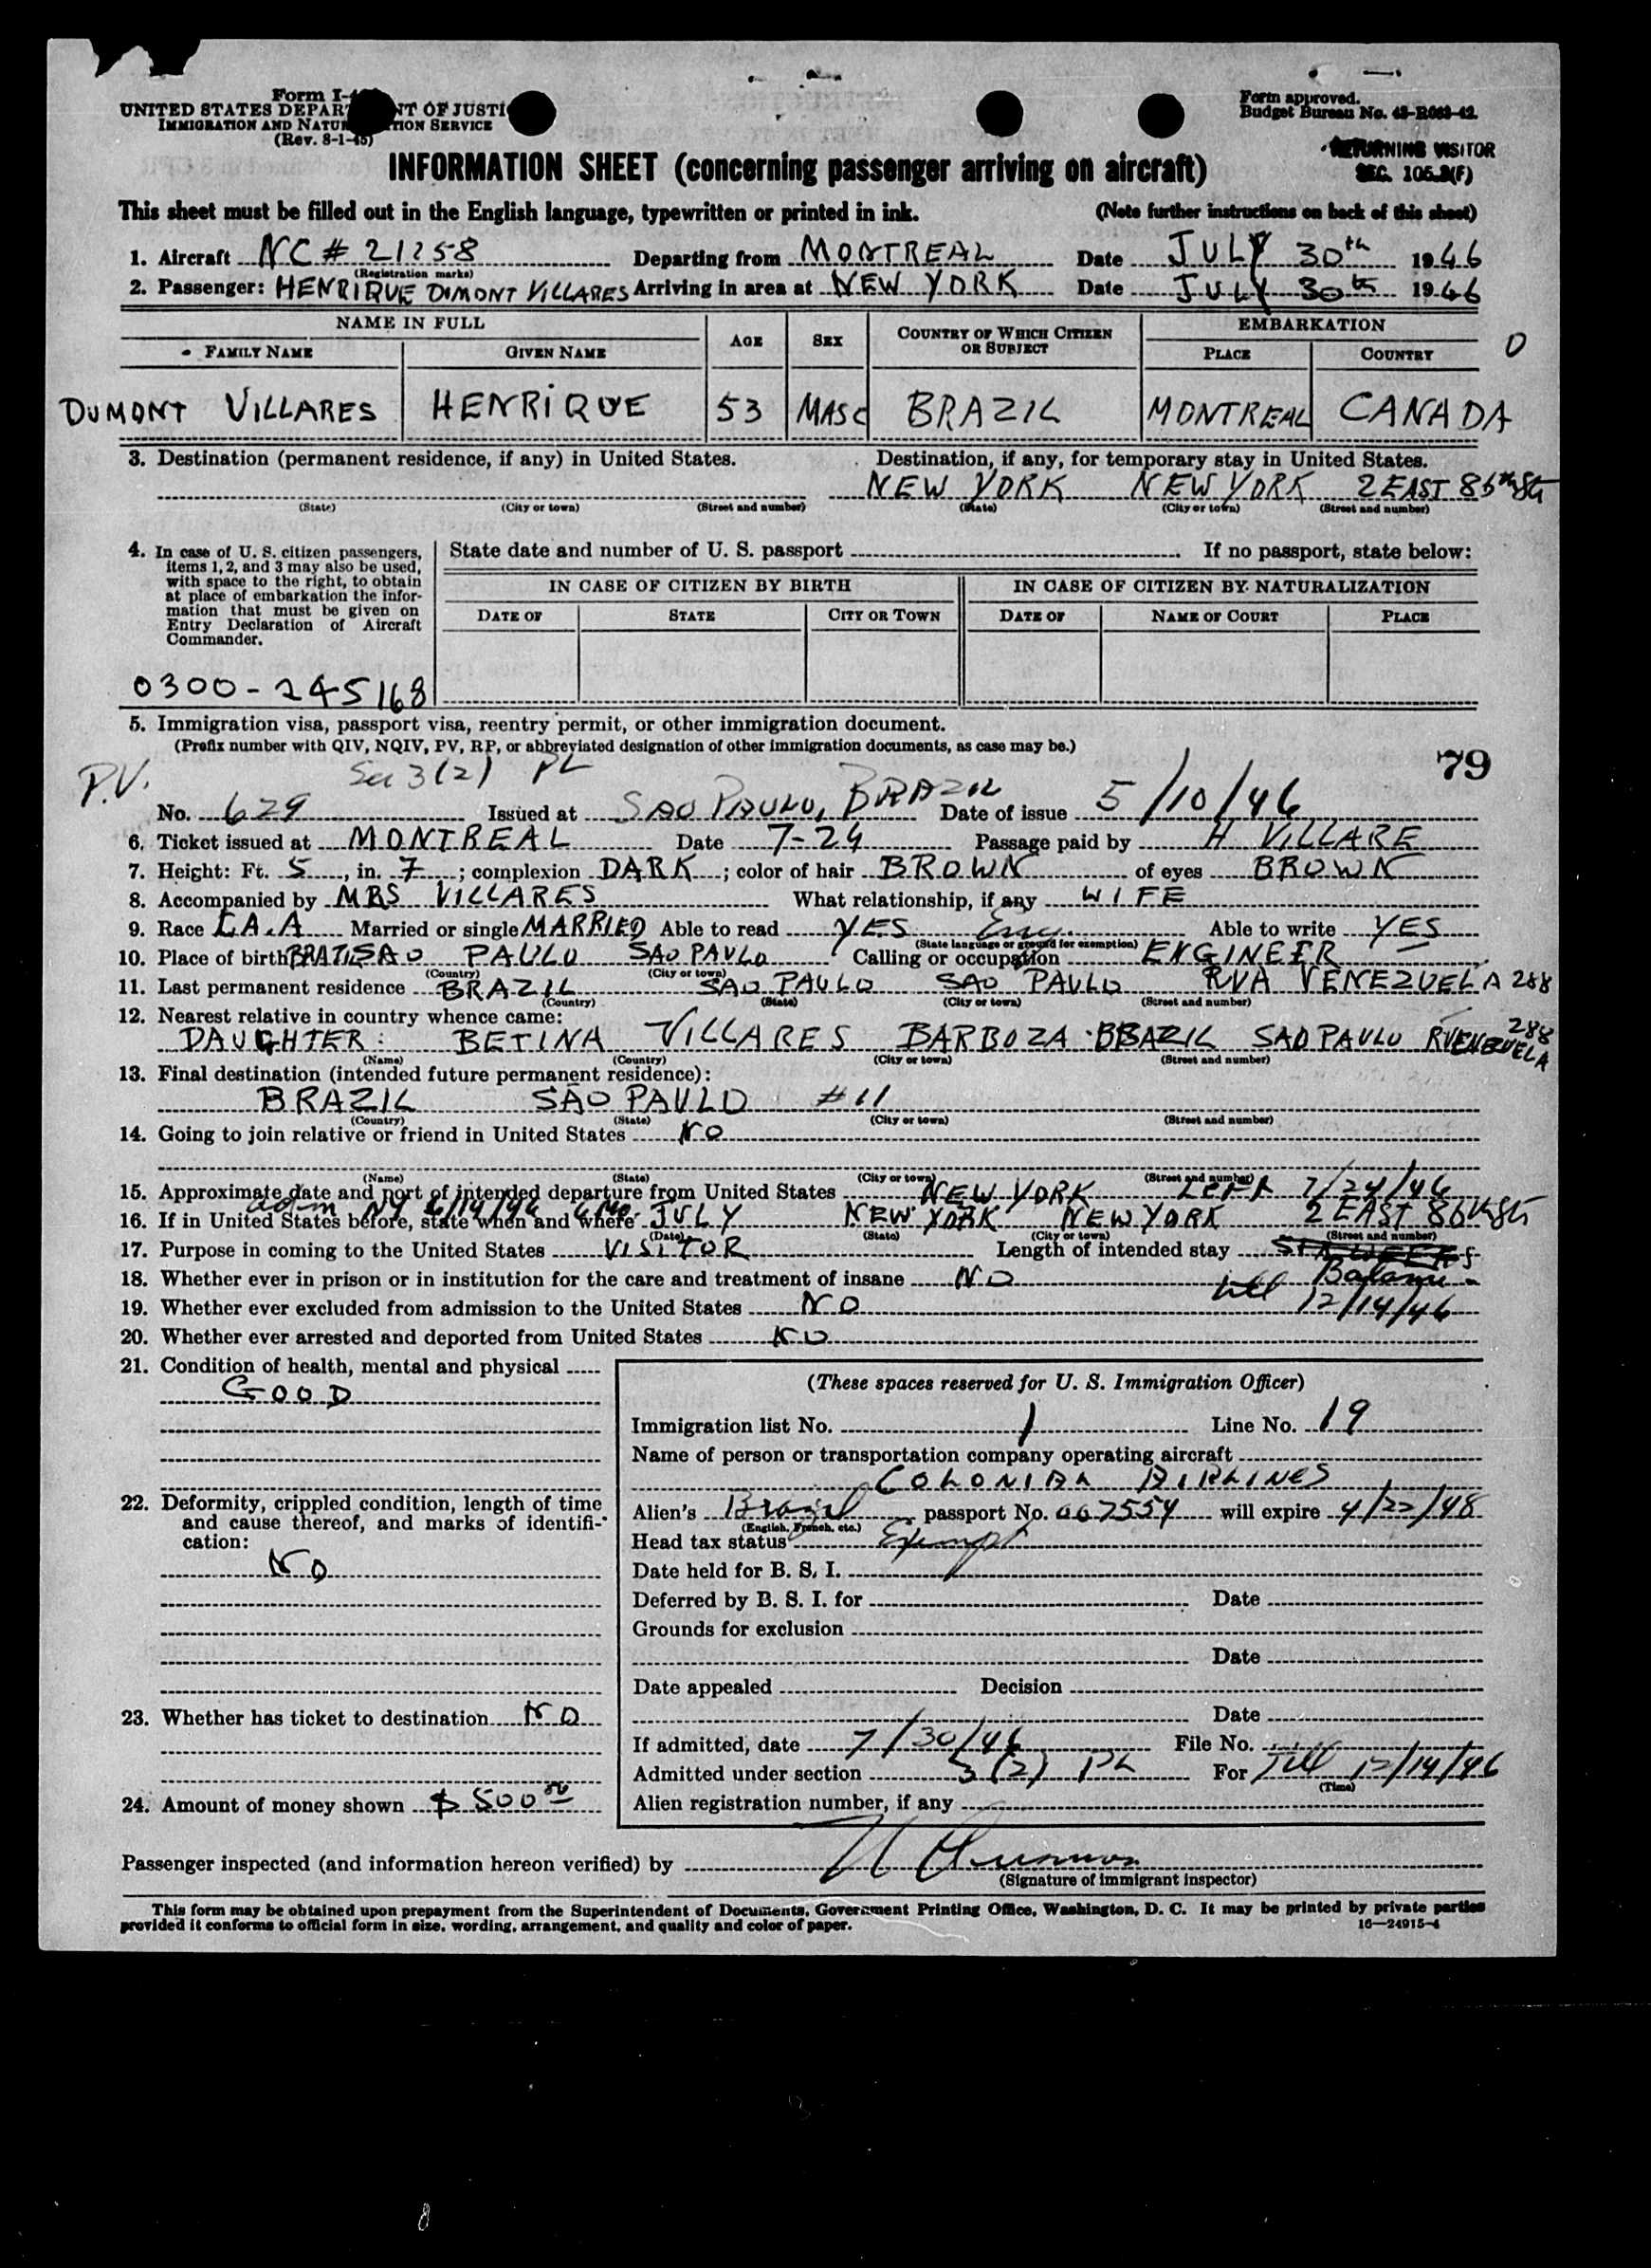 Form I-
UNITED STATES DEPARTMENT OF JUSTICE
IMMIGRATION AND NATURALIZATION SERVICE
(Rev. 8-1-45)
Form approved.
Budget Bureau No. 43-R063-42.
RETURNING VISITOR
SEC. 105.3(F)
INFORMATION SHEET (concerning passenger arriving on aircraft)
This sheet must be filled out in the English language, typewritten or printed in ink. (Note further instructions on back of this sheet)
1. Aircraft NC # 21258 Departing from MONTREAL Date JULY 30th 1946
(Registration marks)
2. Passenger: HENRIQUE DUMONT VILLARES Arriving in area at NEW YORK Date JULY 30th 1946
NAME IN FULL AGE SEX COUNTRY OF WHICH CITIZEN OR SUBJECT EMBARKATION 0
FAMILY NAME GIVEN NAME PLACE COUNTRY
DUMONT VILLARES HENRIQUE 53 MASC BRAZIL MONTREAL CANADA
3. Destination (permanent residence, if any) in United States. Destination, if any, for temporary stay in United States.
NEW YORK NEW YORK 2 EAST 86th St
(State) (City or town) (Street and number) (State) (City or town) (Street and number)
4. In case of U. S. citizen passengers, items 1, 2, and 3 may also be used, with space to the right, to obtain at place of embarkation the information that must be given on Entry Declaration of Aircraft Commander.
State date and number of U. S. passport . If no passport, state below:
IN CASE OF CITIZEN BY BIRTH IN CASE OF CITIZEN BY NATURALIZATION
DATE OF STATE CITY OR TOWN DATE OF NAME OF COURT PLACE
0300-245168
5. Immigration visa, passport visa, reentry permit, or other immigration document.
(Prefix number with QIV, NQIV, PV, RP, or abbreviated designation of other immigration documents, as case may be.)
79
P.V. Sec 3(2) PL
No. 629 Issued at SAO PAULO, BRAZIL Date of issue 5/10/46
6. Ticket issued at MONTREAL Date 7-24 Passage paid by H VILLARE
7. Height: Ft. 5, in. 7; complexion DARK; color of hair BROWN of eyes BROWN
8. Accompanied by MRS VILLARES What relationship, if any WIFE
9. Race LA.A Married or single MARRIED Able to read YES Eng. Able to write YES
(State language or ground for exemption)
10. Place of birth SAO PAULO SAO PAULO Calling or occupation ENGINEER
(Country) (City or town)
11. Last permanent residence BRAZIL SAO PAULO SAO PAULO RUA VENEZUELA 288
(Country) (State) (City or town) (Street and number)
12. Nearest relative in country whence came:
DAUGHTER: BETINA VILLARES BARBOZA BRAZIL SAO PAULO R VENEZUELA 288
(Name) (Country) (City or town) (Street and number)
13. Final destination (intended future permanent residence):
BRAZIL SAO PAULO # 11
(Country) (State) (City or town) (Street and number)
14. Going to join relative or friend in United States NO
(Name) (State) (City or town) (Street and number)
15. Approximate date and port of intended departure from United States NEW YORK Left 7/24/46
adm NY 6/14/46 6 Mo.
16. If in United States before, state when and where JULY NEW YORK NEW YORK 2 EAST 86th St
(Date) (State) (City or town) (Street and number)
17. Purpose in coming to the United States VISITOR Length of intended stay
18. Whether ever in prison or in institution for the care and treatment of insane NO Balance
19. Whether ever excluded from admission to the United States NO till 12/14/46
20. Whether ever arrested and deported from United States NO
21. Condition of health, mental and physical
GOOD
22. Deformity, crippled condition, length of time and cause thereof, and marks of identification:
NO
23. Whether has ticket to destination NO
24. Amount of money shown $ 500 00
(These spaces reserved for U. S. Immigration Officer)
Immigration list No. 1 Line No. 19
Name of person or transportation company operating aircraft
COLONIAL AIRLINES
Alien's Brazil passport No. 067554 will expire 4/22/48
(English, French, etc.)
Head tax status Exempt
Date held for B. S. I.
Deferred by B. S. I. for Date
Grounds for exclusion
Date
Date appealed Decision
Date
If admitted, date 7/30/46 File No.
Admitted under section 3(2) PL For Till 12/14/46
(Time)
Alien registration number, if any
Passenger inspected (and information hereon verified) by
(Signature of immigrant inspector)
This form may be obtained upon prepayment from the Superintendent of Documents, Government Printing Office, Washington, D. C. It may be printed by private parties
provided it conforms to official form in size, wording, arrangement, and quality and color of paper. 16—24915-4
8